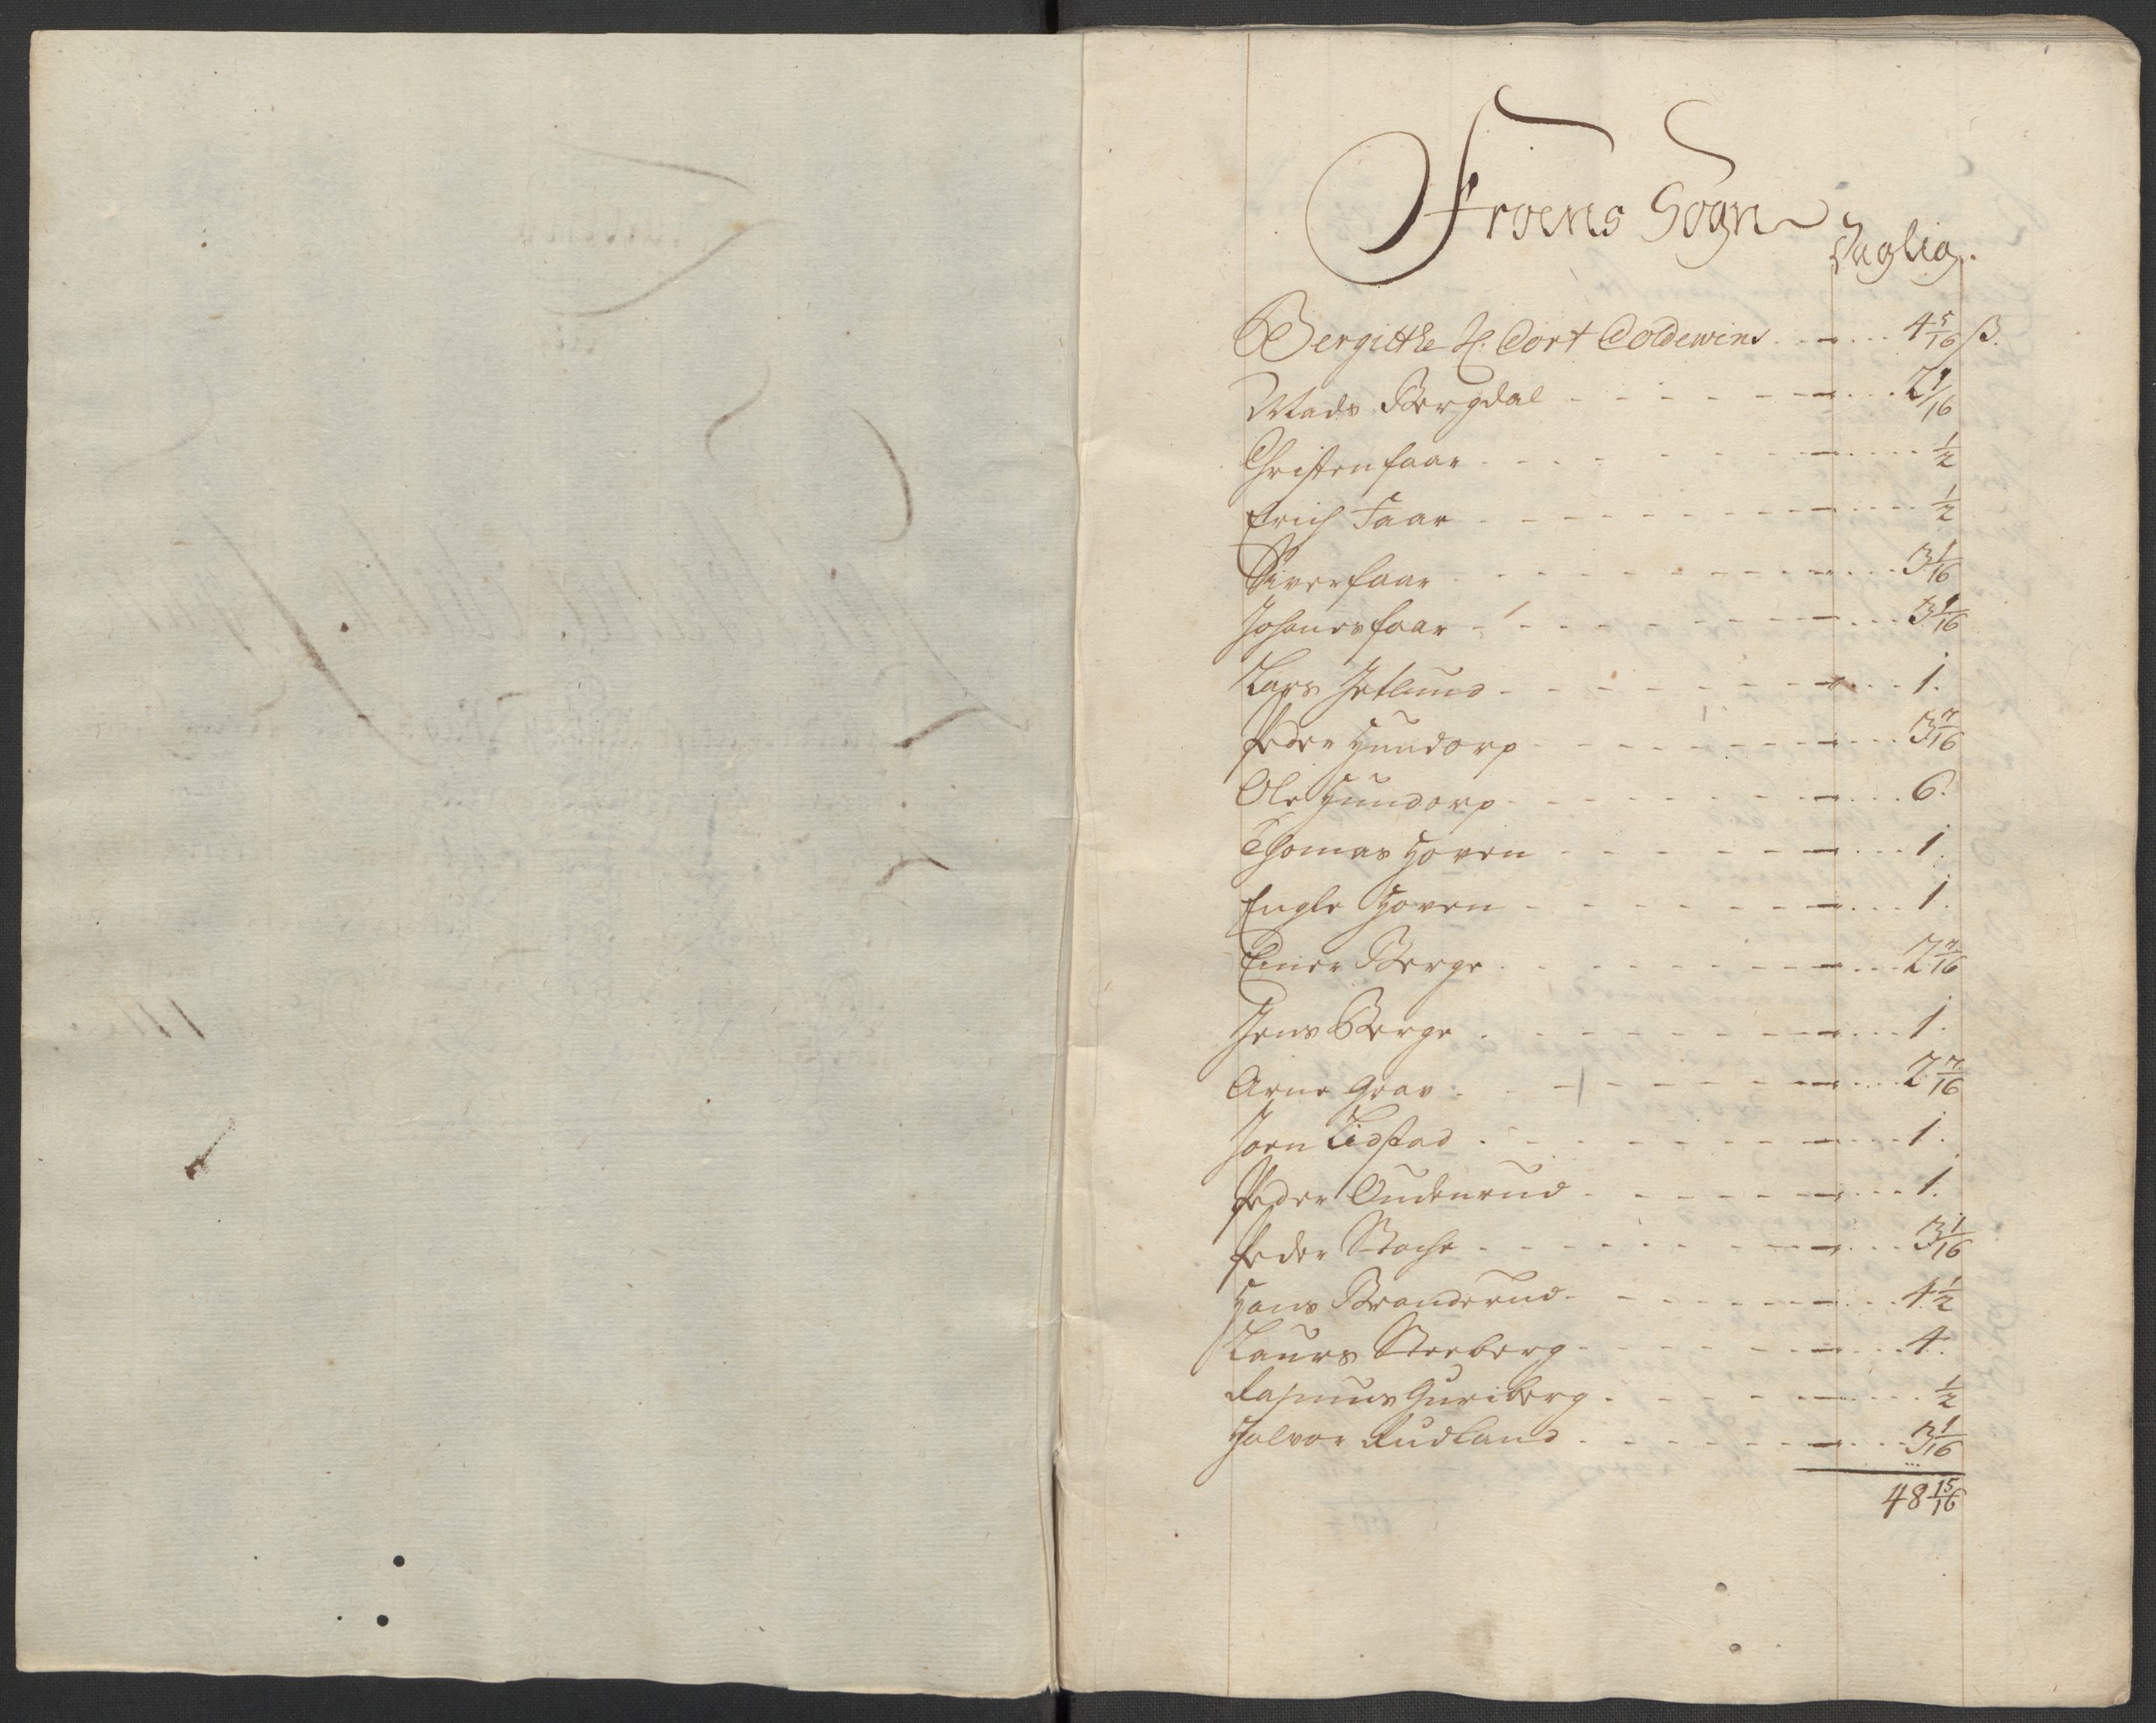 Froens Sogn
Daglig.
Bergitthe H. Cort Coldewins - - - 4 5/16 ß.
Mads Bergdal - - - 2 1/16
Christen faar - - - 1/2
Erich Faar - - - 1/2
Siver faar - - - 3 1/16
Johanes faar - - - 3 1/16
Lars Jetlund - - - 1.
Peder Hundorp - - - 3 7/16
Ole Hundorp - - - 6.
Thomas Hoven - - - 1.
Engle Hoven - - - 1.
Einer Berge - - - 2 7/16
Jens Berge - - - 1.
Arne Grav - - - 2 7/16
Joen Lidstad - - - 1.
Peder Oudenrud - - - 1.
Peder Stache - - - 3 1/16
Hans Branderud - - - 4 1/2
Laurs Steeberg - - - 4.
Rasmus Guriberg - - - 1/2
Halvor Rudland - - - 3 1/16
48 15/16